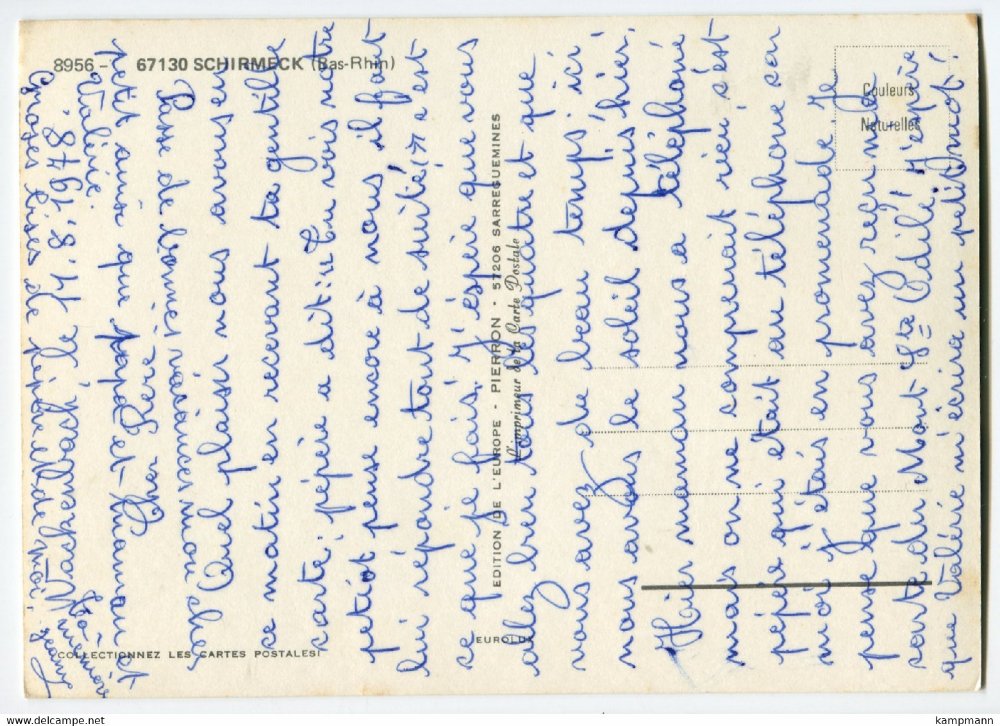 8956 - 67130 SCHIRMECK (Bas-Rhin)
Couleurs
Naturelles
EDITION DE L'EUROPE - PIERRON - 57206 SARREGUEMINES
L'imprimeur de la Carte Postale
EUROLUX
COLLECTIONNEZ LES CARTES POSTALES!
Waschenbach le 14.8.1978.
Cher Péré
Passe de bonnes vacances mon chou
Quel plaisir nous avons eu
ce matin en recevant ta gentille
carte, pépée a dit: Tu vois notre
petiot pense encore à nous il faut
lui répondre tout de suite, et
ce que je fais. J'espère que vous
allez bien tous les quatre et que
vous avez du beau temps, ici
nous avons le soleil depuis hier,
Hier maman nous a téléphoné
mais on ne comprenait rien c'est
pépée qui était au téléphone car
moi j'étais en promenade. Je
pense que vous avez reçu ma
carte du Mont Ste Odile! J'espère
que Valérie m'écrira un petit mot!
petit ainsi que papa et maman et
Valérie. Ta mémère
Grosses bises de pépée et de moi!